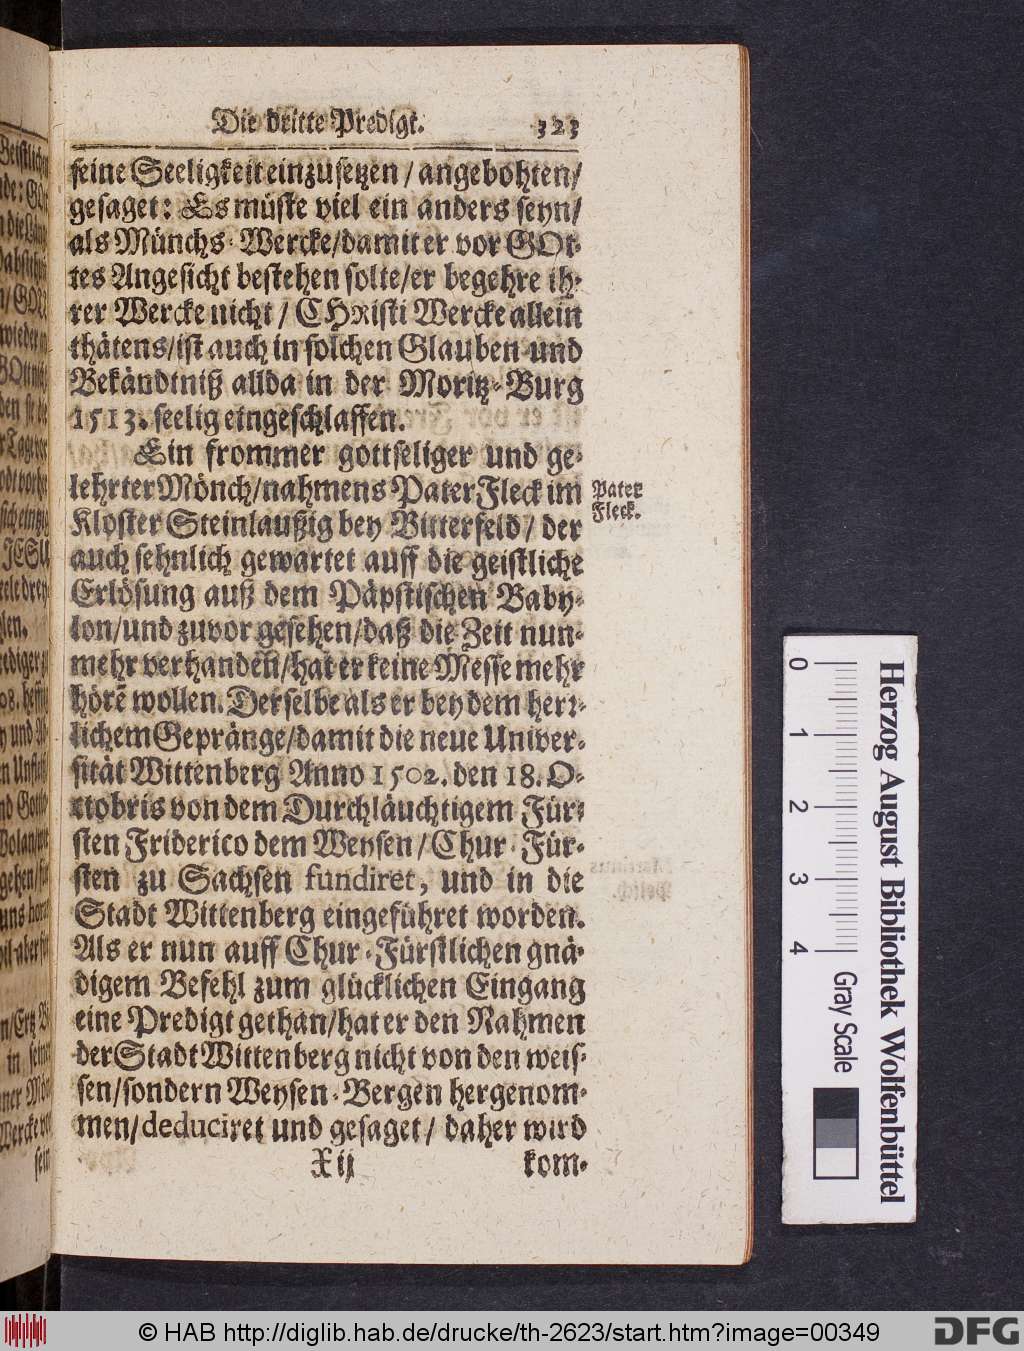 Die dritte Predigt. 323
seine Seeligkeit einzusetzen / angebohten/
gesaget: Es müste viel ein anders seyn/
als Münchs-Wercke/damit er vor GOt-
tes Angesicht bestehen solte/er begehre ih-
rer Wercke nicht / CHRisti Wercke allein
thätens/ist auch in solchen Glauben und
Bekändtniß allda in der Moritz-Burg
1513. seelig eingeschlaffen.
Ein frommer gottseliger und ge-
lehrter Mönch/nahmens Pater Fleck im
Pater
Fleck.
Kloster Steinlaußig bey Bitterfeld/ der
auch sehnlich gewartet auff die geistliche
Erlösung auß dem Päpstischen Baby-
lon/und zuvor gesehen/daß die Zeit nun-
mehr verhanden/hat er keine Messe mehr
hörē wollen. Derselbe als er bey dem herr-
lichem Gepränge/damit die neue Univer-
sität Wittenberg Anno 1502. den 18. O-
ctobris von dem Durchläuchtigem Für-
sten Friderico dem Weysen / Chur-Für-
sten zu Sachsen fundiret, und in die
Stadt Wittenberg eingeführet worden.
Als er nun auff Chur-Fürstlichen gnä-
digem Befehl zum glücklichen Eingang
eine Predigt gethan/hat er den Nahmen
der Stadt Wittenberg nicht von den weis-
sen/sondern Weysen-Bergen hergenom-
men/deduciret und gesaget / daher wird
X ij kom-
0 1 2 3 4
Gray Scale
Herzog August Bibliothek Wolfenbüttel
© HAB http://diglib.hab.de/drucke/th-2623/start.htm?image=00349
DFG